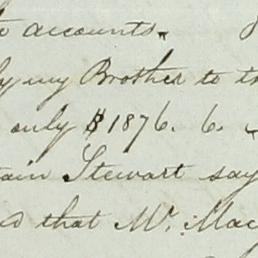 accounts.
my Brother to
only $1876. 6.
Stewart say
that Mr. Mac